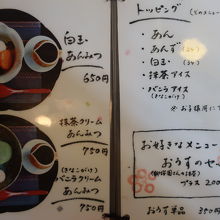 白玉
あんみつ
650円
抹茶クリーム
あんみつ
750円
(きなこがけ)
バニラクリーム
あんみつ
750円
トッピング
・あん
・あんず
・白玉
・抹茶アイス
・バニラアイス
(きなこがけ)
お好きなメニュー
おうすのセ
プラス 200
おうす単品 350円